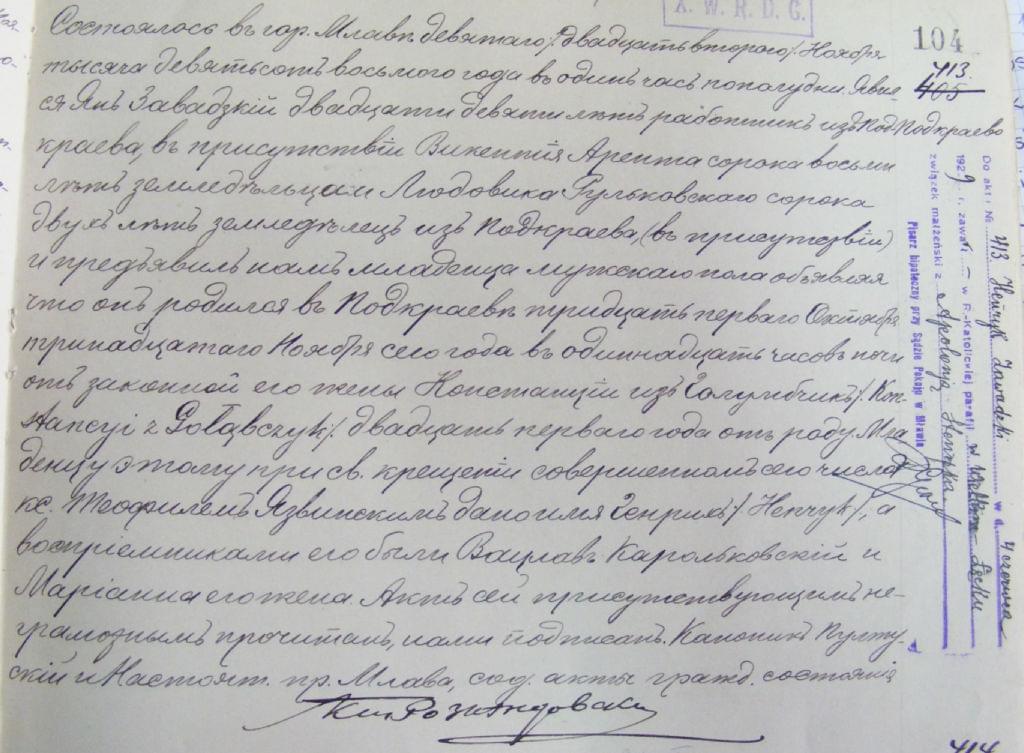 X. W. R. D. G.
104
413
405
Состоялось въ гор. Млавѣ девятаго /двадцать втораго/ Ноября
тысяча девятьсотъ восьмого года въ одинъ часъ пополудни. Явил-
ся Янъ Завадзкій двадцати девяти лѣтъ работникъ изъ Подкраево
краева, въ присутствіи Викентія Арента сорока восьми
лѣтъ земледѣльца и Людовика Гульковскаго сорока
двухъ лѣтъ земледѣлецъ изъ Подкраева, (въ присутствіи)
и предъявилъ намъ младенца мужскаго пола объявляя
что онъ родился въ Подкраевѣ тридцать перваго Октября
тринадцатаго Ноября сего года въ одиннадцать часовъ ночи
отъ законной его жены Констанціи изъ Голумбчикъ /Кон-
stancyi z Gołąbczyk/ двадцать перваго года отъ роду. Мла-
денцу этому при св. крещеніи совершенномъ сего числа
кс. Теофилемъ Язвинскимъ дано имя Генрихъ /Henryk/, а
воспріемниками его были Вацлавъ Карольковскій и
Маріанна его жена. Актъ сей присутствующимъ не-
грамотнымъ прочитанъ, нами подписанъ. Каноникъ Пулту-
скій и Настоят. пр. Млава, сод. акты гражд. состоянія
Do aktu № 413 Henryk Zawadzki w d. 4 czerwca
1929 r. zawarł - w R.-Katolickiej parafji w
związek małżeński z Apolonją
Pisarz hipoteczny przy Sądzie Pokoju w Mławie
414